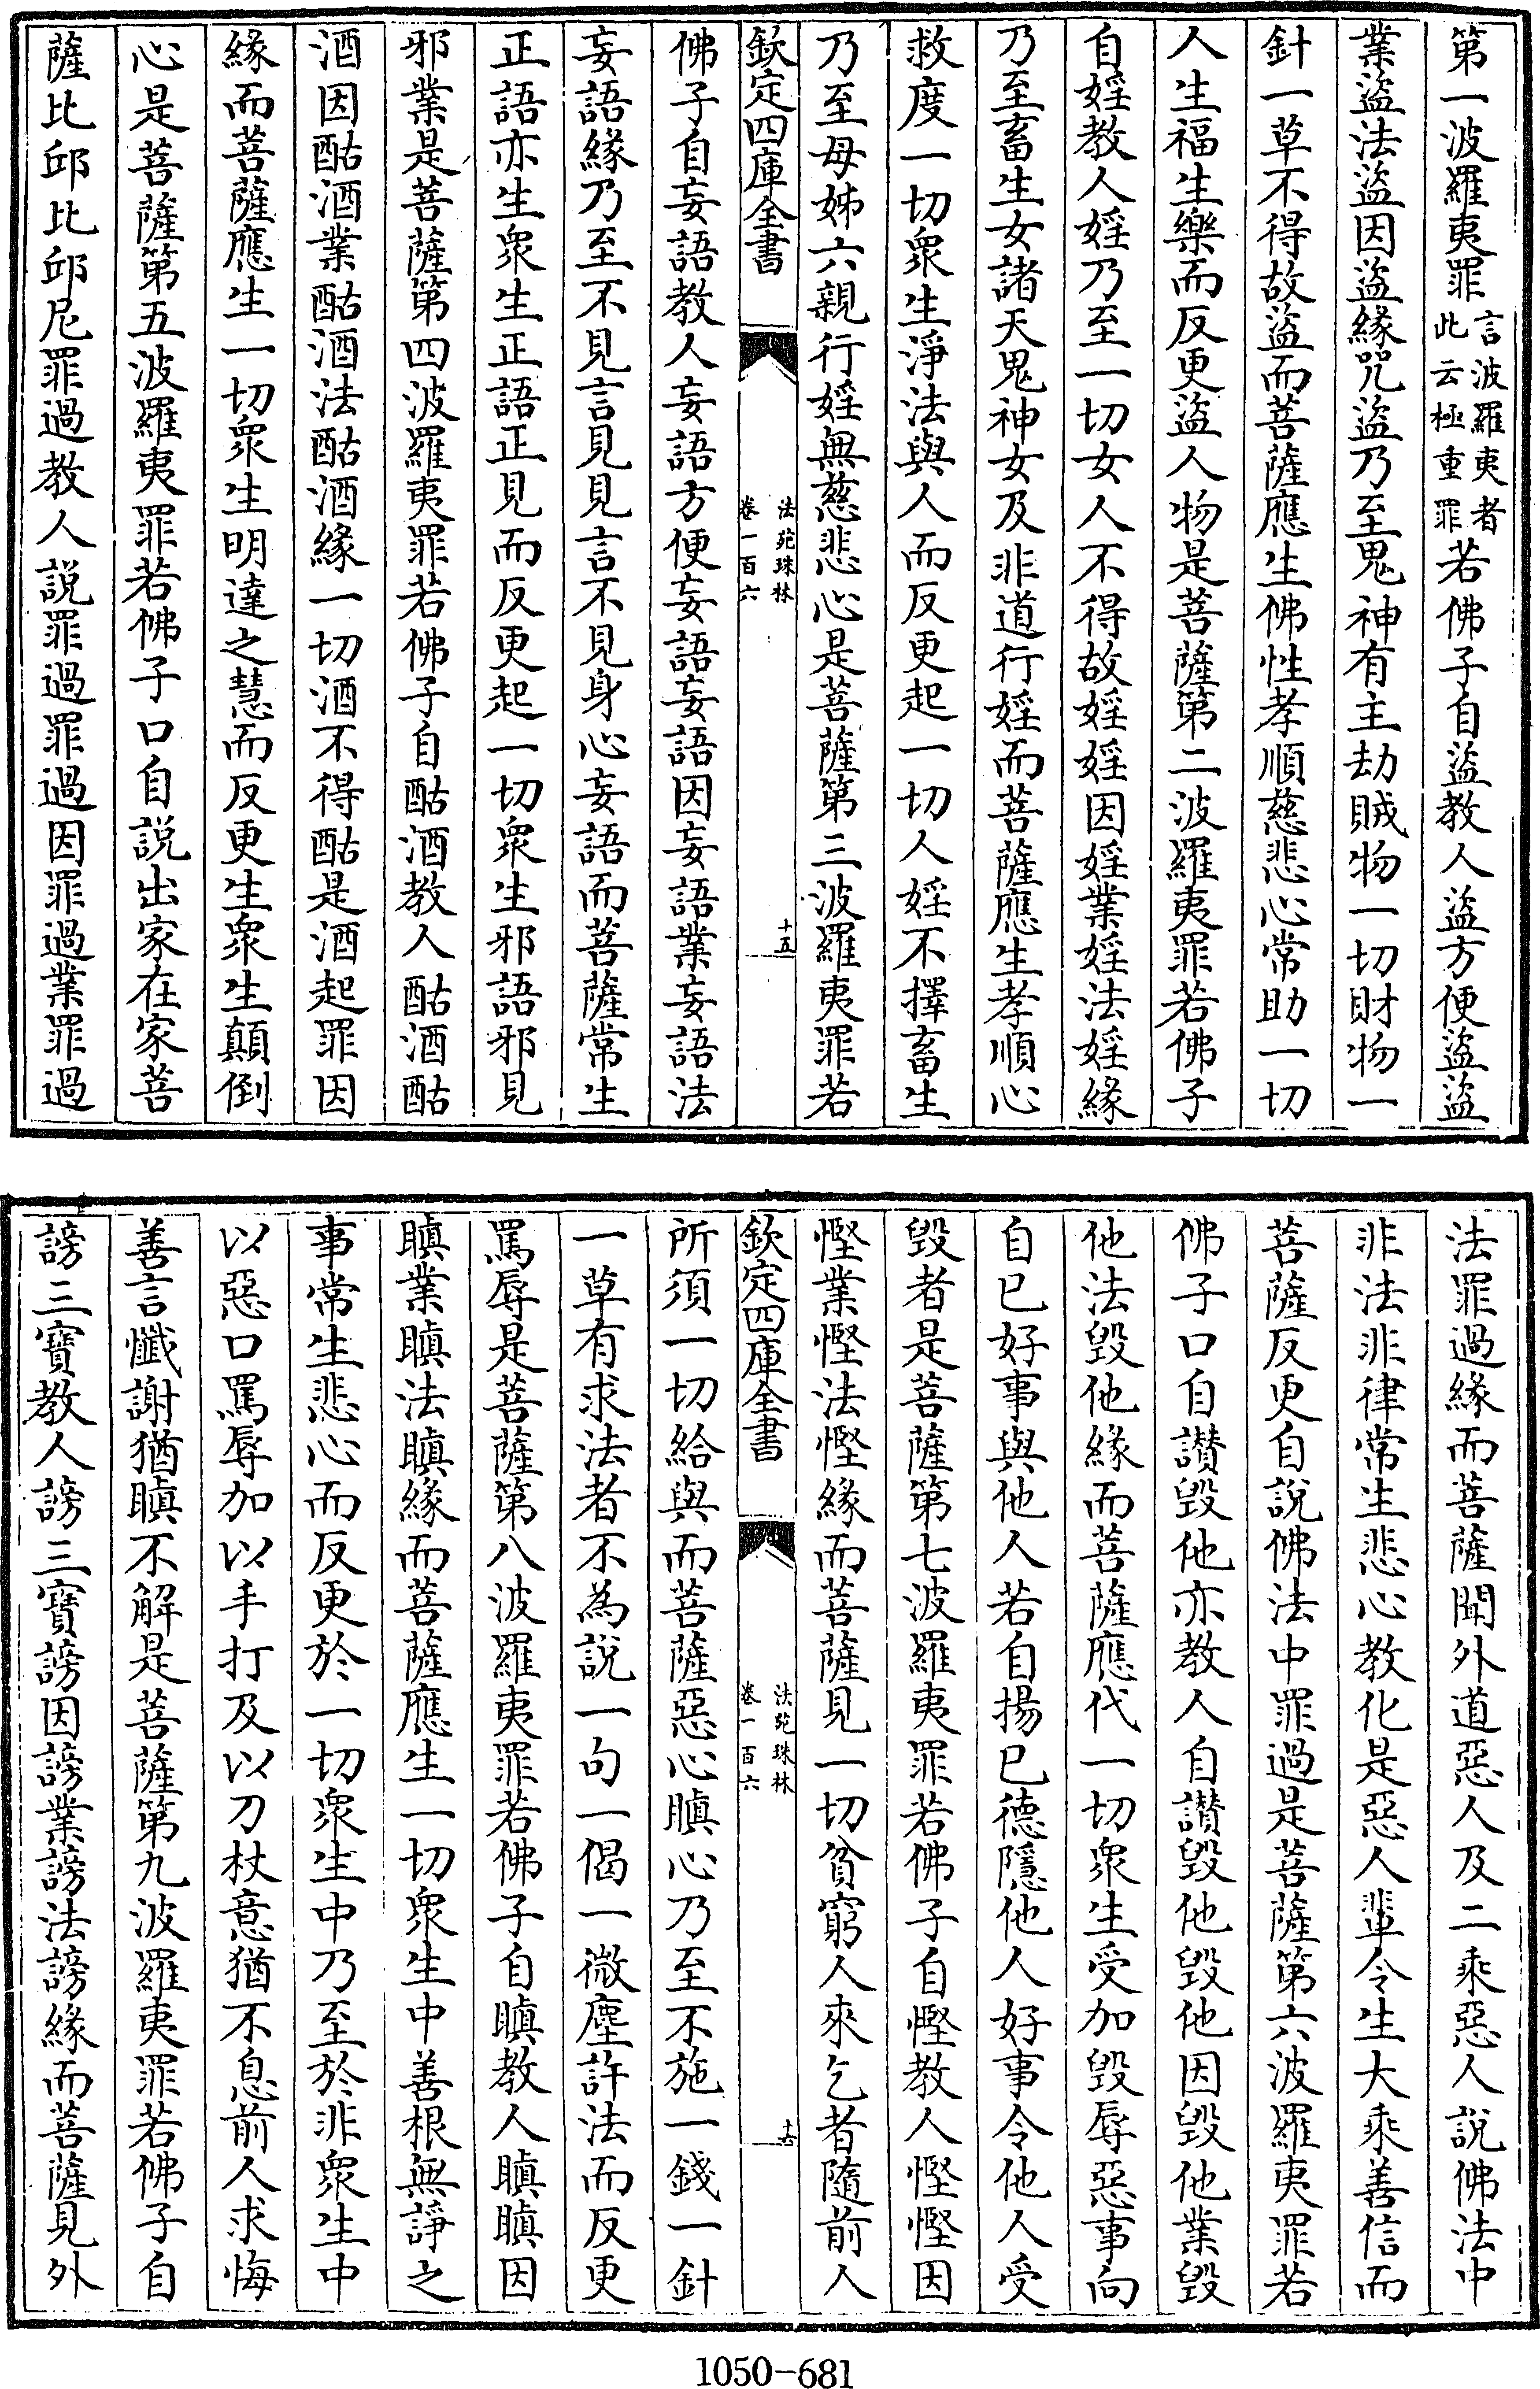 第一波羅夷罪言波羅夷者此云極重罪若佛子自盜教人盜方便盜盜
業盜法盜因盜緣咒盜乃至鬼神有主劫賊物一切財物一
針一草不得故盜而菩薩應生佛性孝順慈悲心常助一切
人生福生樂而反更盜人物是菩薩第二波羅夷罪若佛子
自婬教人婬乃至一切女人不得故婬婬因婬業婬法婬緣
乃至畜生女諸天鬼神女及非道行婬而菩薩應生孝順心
救度一切衆生淨法與人而反更起一切人婬不擇畜生
乃至母姊六親行婬無慈悲心是菩薩第三波羅夷罪若
欽定四庫全書
法苑珠林
卷一百六
十五
佛子自妄語教人妄語方便妄語妄語因妄語業妄語法
妄語緣乃至不見言見見言不見身心妄語而菩薩常生
正語亦生衆生正語正見而反更起一切衆生邪語邪見
邪業是菩薩第四波羅夷罪若佛子自酤酒教人酤酒酤
酒因酤酒業酤酒法酤酒緣一切酒不得酤是酒起罪因
緣而菩薩應生一切衆生明達之慧而反更生衆生顛倒
心是菩薩第五波羅夷罪若佛子口自說出家在家菩
薩比邱比邱尼罪過教人說罪過罪過因罪過業罪過
法罪過緣而菩薩聞外道惡人及二乘惡人說佛法中
非法非律常生悲心教化是惡人輩令生大乘善信而
菩薩反更自說佛法中罪過是菩薩第六波羅夷罪若
佛子口自讃毀他亦教人自讃毀他毀他因毀他業毀
他法毀他緣而菩薩應代一切衆生受加毀辱惡事向
自已好事與他人若自揚已德隱他人好事令他人受
毀者是菩薩第七波羅夷罪若佛子自慳教人慳慳因
慳業慳法慳緣而菩薩見一切貧窮人來乞者隨前人
欽定四庫全書
法苑珠林
卷一百六
十六
所須一切給與而菩薩惡心瞋心乃至不施一錢一針
一草有求法者不為說一句一偈一微塵許法而反更
罵辱是菩薩第八波羅夷罪若佛子自瞋教人瞋瞋因
瞋業瞋法瞋緣而菩薩應生一切衆生中善根無諍之
事常生悲心而反更於一切衆生中乃至於非衆生中
以惡口罵辱加以手打及以刀杖意猶不息前人求悔
善言懺謝猶瞋不解是菩薩第九波羅夷罪若佛子自
謗三寶教人謗三寶謗因謗業謗法謗緣而菩薩見外
1050-681